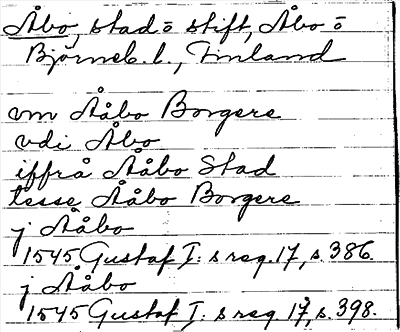 Åbo, stad o stift, Åbo o
Björneb. l., Finland
vm Ååbo Borgere
vdi Åbo
iffrå Ååbo Stad
tesse Ååbo Borgere
j Ååbo
1545 Gustaf I: s reg. 17, s. 386.
j Ååbo
1545 Gustaf I: s reg 17, s. 398.